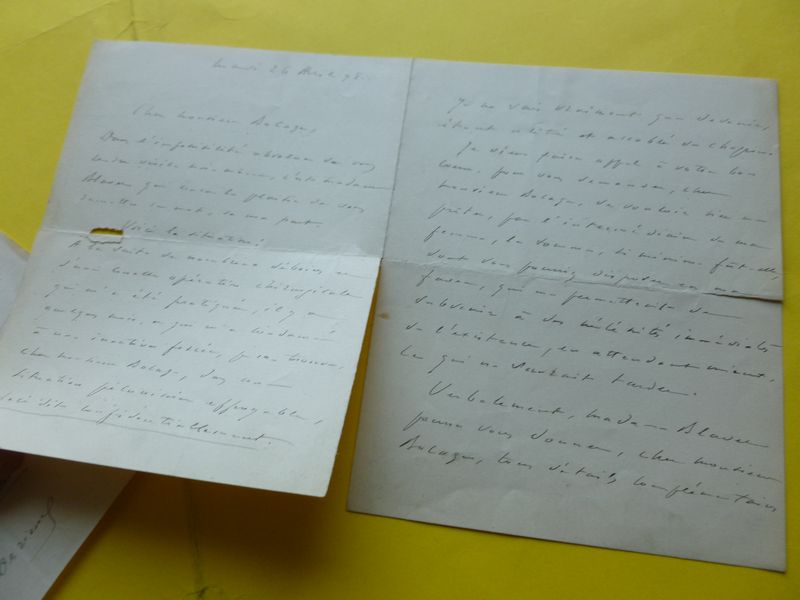 Mardi 26 Avril 98.
Cher monsieur Balage,
Dans l'impossibilité absolue de vous
rendre visite moi-même, c'est madame
Blavin qui aura le plaisir de vous
remettre ce mot, de ma part.
Voici la situation:
A la suite de nombreux déboires, et
d'une cruelle opération chirurgicale
qui m'a été pratiquée, il y a
quelques mois, et qui m'a condamné
à une inaction forcée, je me trouve,
cher monsieur Balage, dans une
situation pécuniaire effroyable,
ceci dit confidentiellement.
Je ne sais vraiment que devenir,
étant alité et accablé de chagrins.
Je viens faire appel à votre bon
cœur, pour vous demander, cher
monsieur Balage, de vouloir bien me
prêter, par l'intermédiaire de ma
femme, la somme, si minime fût-elle,
dont vous pourriez disposer en ma
faveur, qui me permettrait de
subvenir à des nécessités immédiates
de l'existence, en attendant mieux,
ce qui ne saurait tarder.
Verbalement, madame Blavin
pourra vous donner, cher monsieur
Balage, tous détails complémentaires